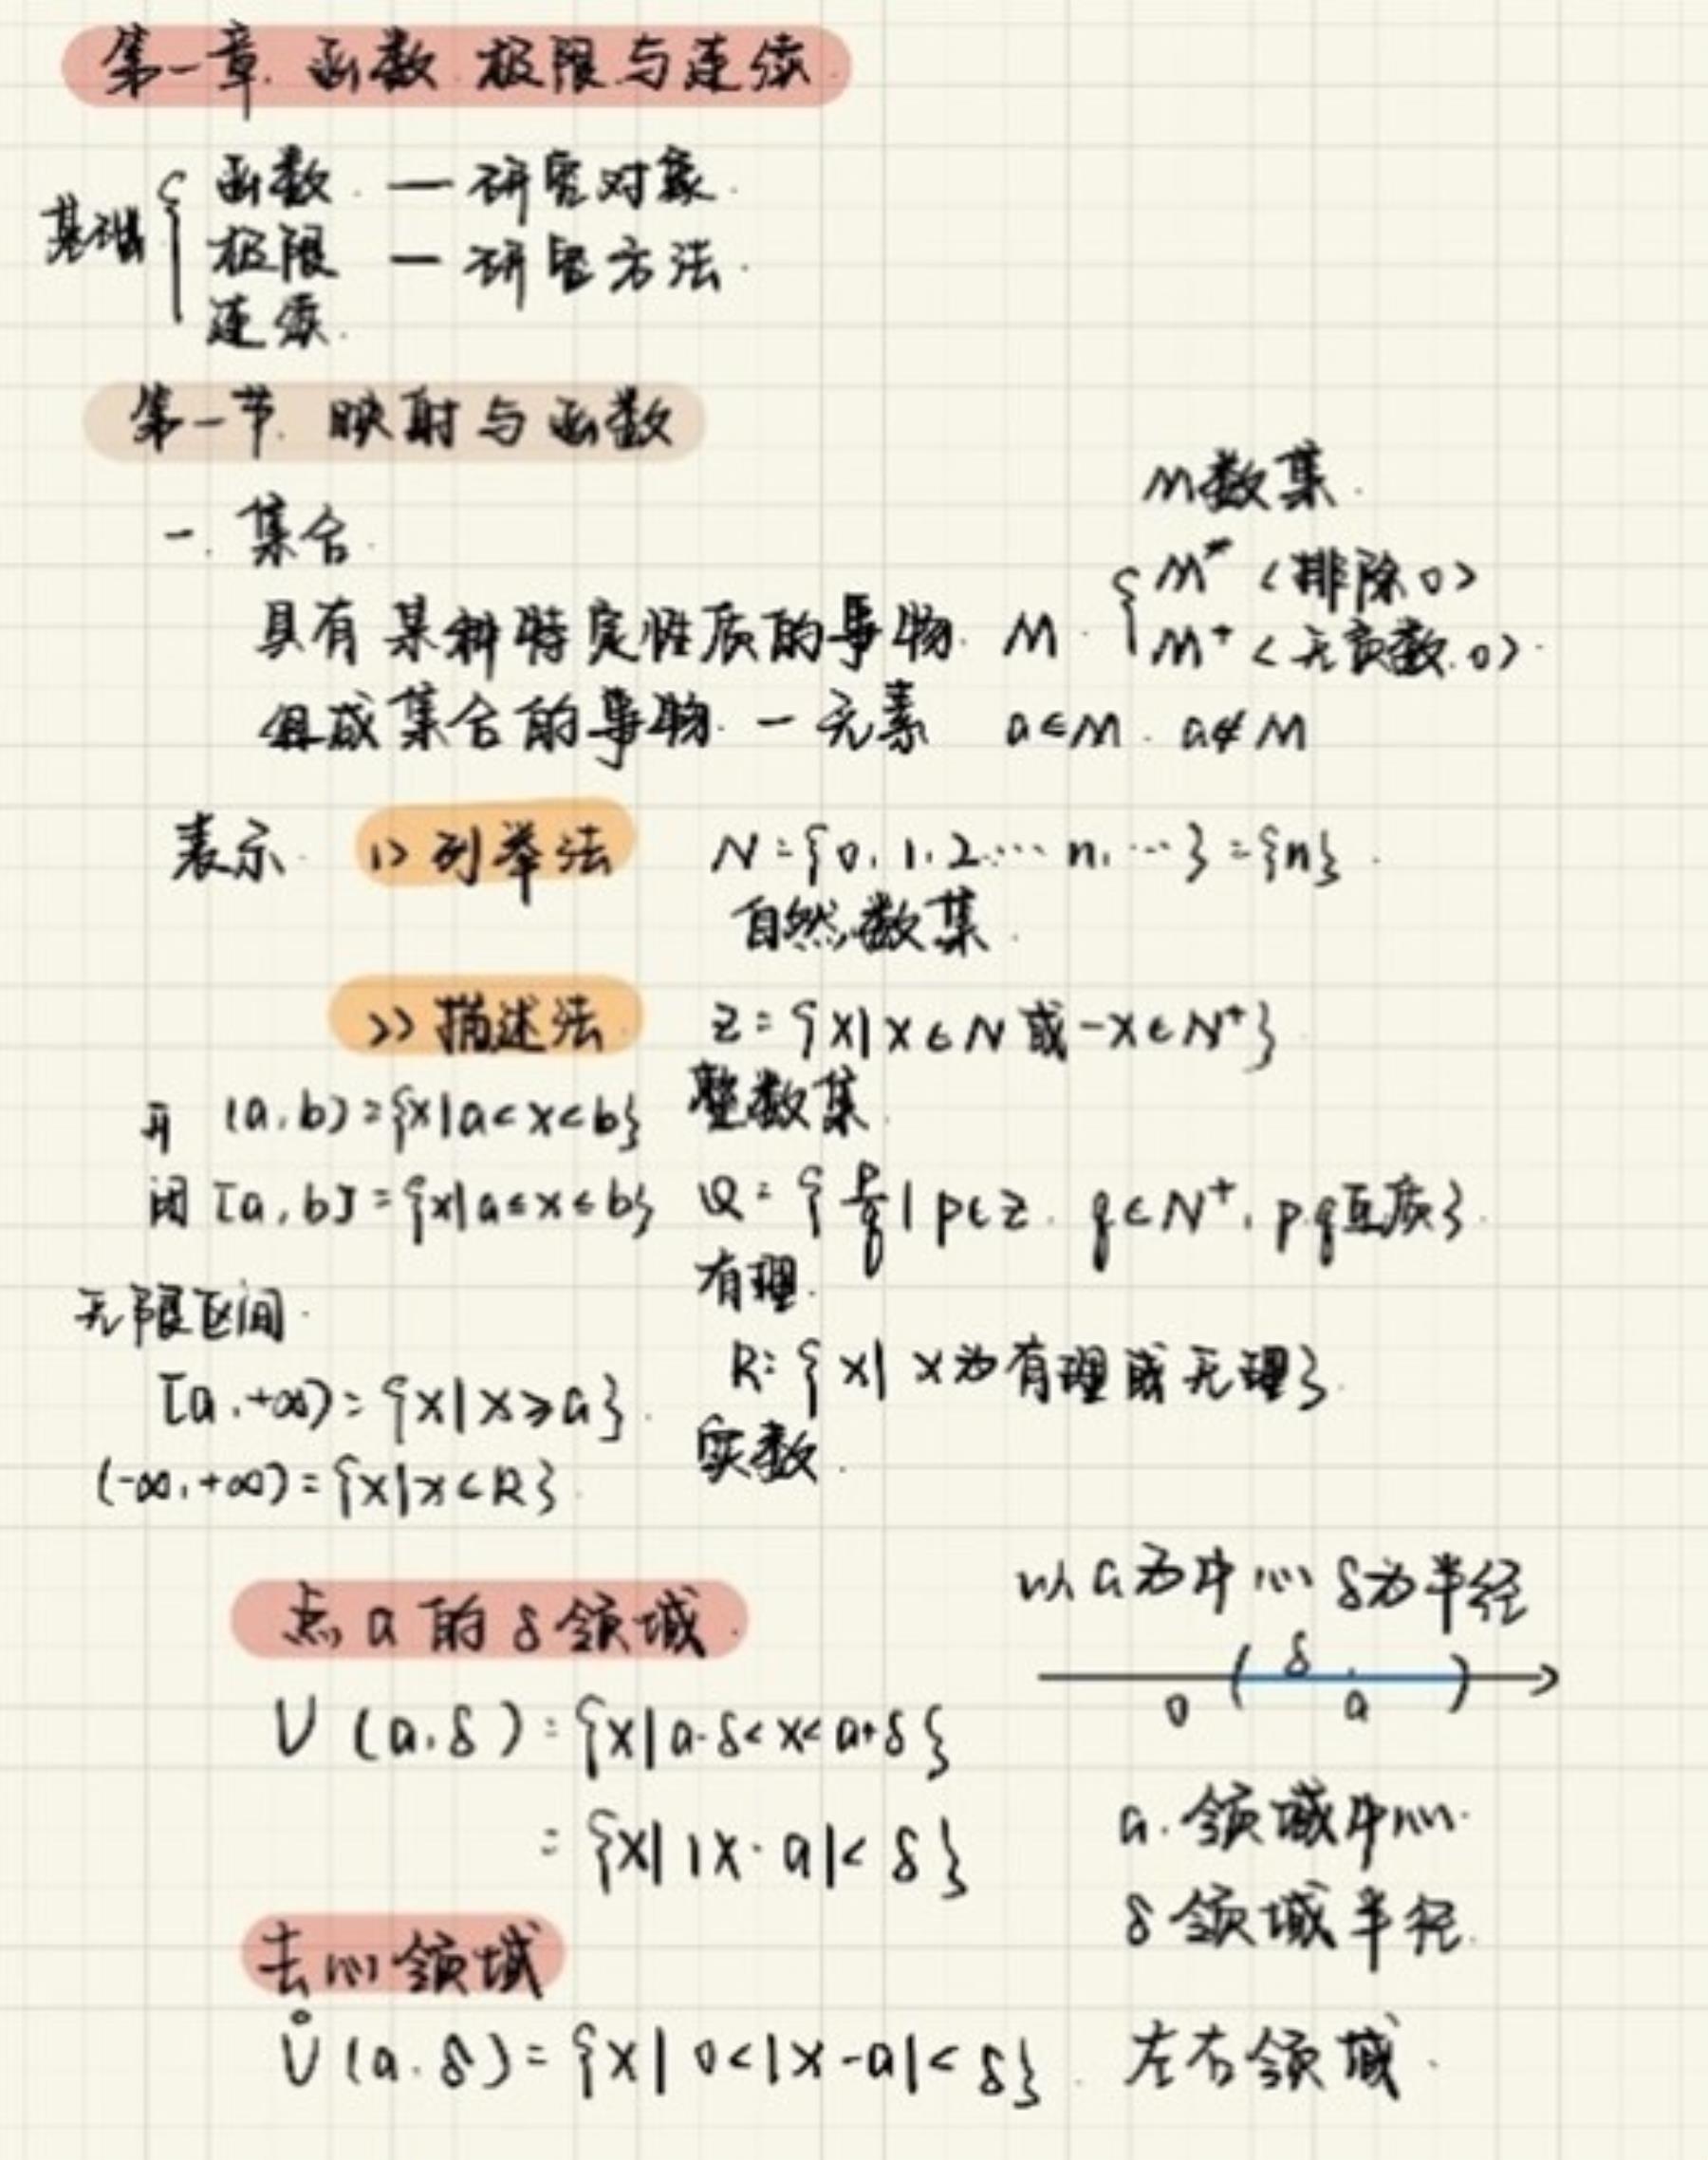 第一章 函数 极限与连续
基础 { 函数 — 研究对象
极限 — 研究方法
连续
第一节 映射与函数
M数集
一. 集合
M* <排除0>
具有某种特定性质的事物. M
M⁺ <无负数.0>
组成集合的事物. — 元素 a∈M. a∉M
表示 1> 列举法 N={0.1.2… n.…}={n}
自然数集
>> 描述法 Z={x|x∈N或-x∈N⁺}
整数集
开 (a.b)={x|a<x<b}
闭 [a,b]={x|a≤x≤b} Q={p/q|p∈Z. q∈N⁺, p.q互质}
有理
无限区间
R={x| x为有理或无理}
[a.+∞)={x|x≥a}
实数
(-∞.+∞)={x|x∈R}
以a为中心 δ为半径
点a的δ领域
δ
0 ( a )
U (a.δ)={x|a-δ<x<a+δ}
={x| |x-a|<δ}
a. 领域中心
δ 领域半径
去心领域
Ů(a.δ)={x| 0<|x-a|<δ} 左右领域